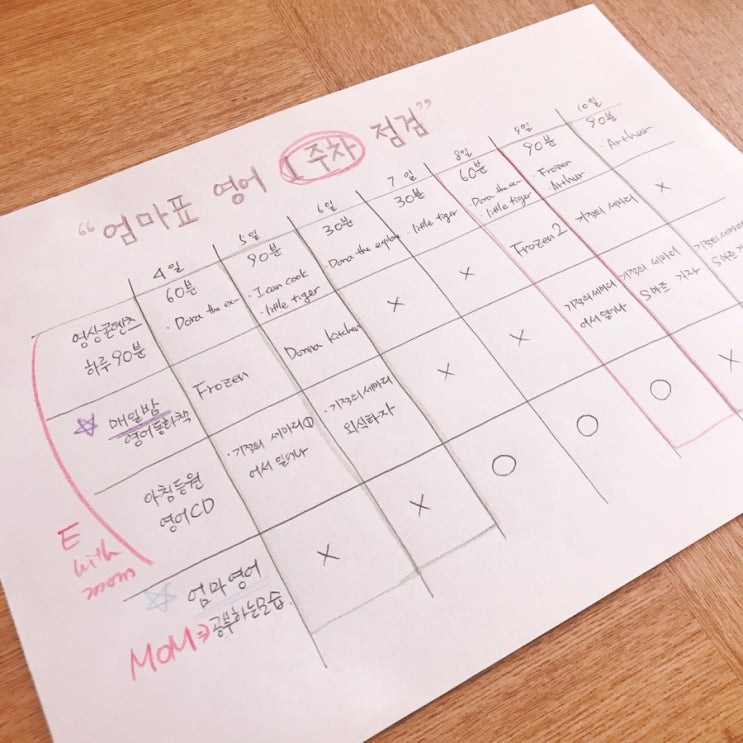 “엄마표 영어 1주차 점검”
4일
5일
6일
7일
8일
9일
10일
영상콘텐츠
하루90분
60분
· Dora the ex-
90분
· I can cook
· little tiger
30분
· Dora the explore
30분
· little tiger
60분
· Dora the ex-
· little tiger
90분
· Frozen
· Arthur
90분
· Arthur
매일밤
영어동화책
Frozen
Donna Kitchen
X
X
Frozen 2
기적의 세마리
X
아침등원
영어CD
· 기적의 세마리①
어서 일어나
· 기적의세마리
외식하자
X
X
기적의세마리
어서일어나
기적의 세마리
가자
기적의 세마리
가자
엄마영어
공부하는모습.
X
X
O
O
O
X
E
with
mom
MOM⇒